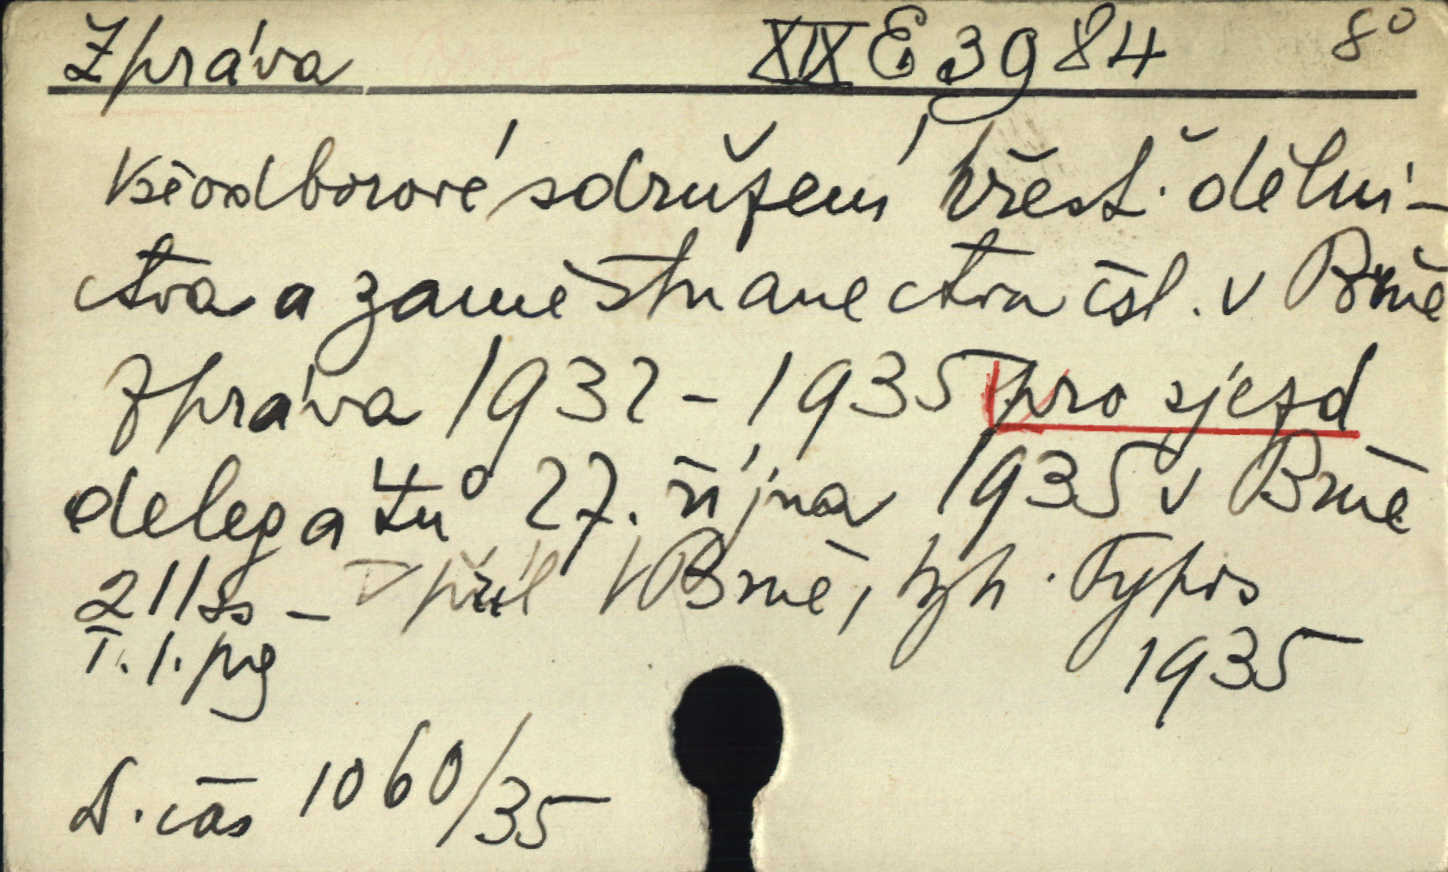 Zpráva XIX E 3984 8°
Všeodborové sdružení křest. dělni-
ctva a zaměstnanectva čsl. v Brně
Zpráva 1932-1935 pro sjezd
delegátů 27. října 1935 v Brně
211 ss - příl V Brně, typ. Typis
I. 1. pg 1935
D. čas 1060/35